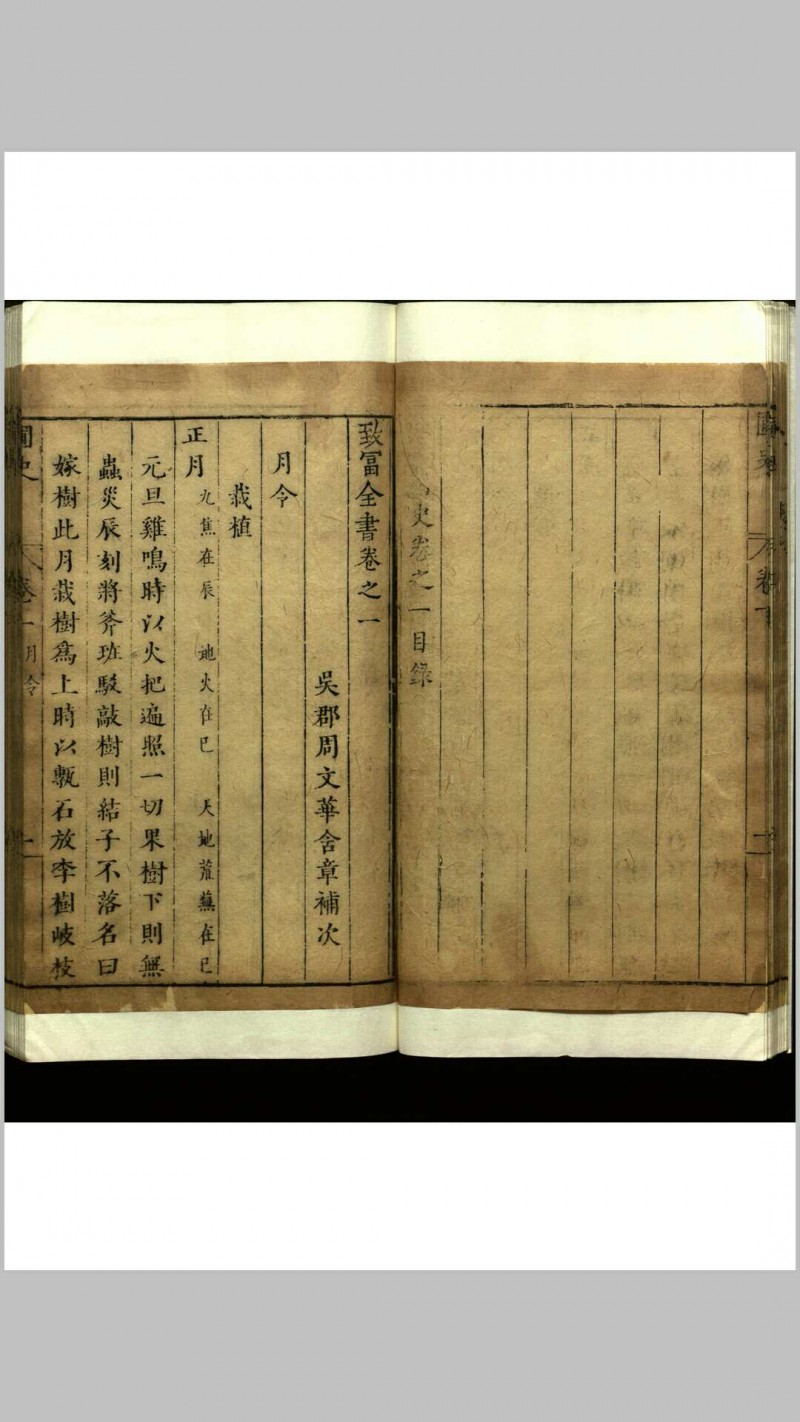 史卷之一目錄
致富全書卷之一
吳郡周文華含章補次
月令
栽植
正月 九焦在辰 地火在巳 天地荒蕪在巳
元旦雞鳴時以火把遍照一切果樹下則無
蟲災辰刻將斧班駁敲樹則結子不落名曰
嫁樹此月栽樹爲上時以甎石放李樹岐枝
月令